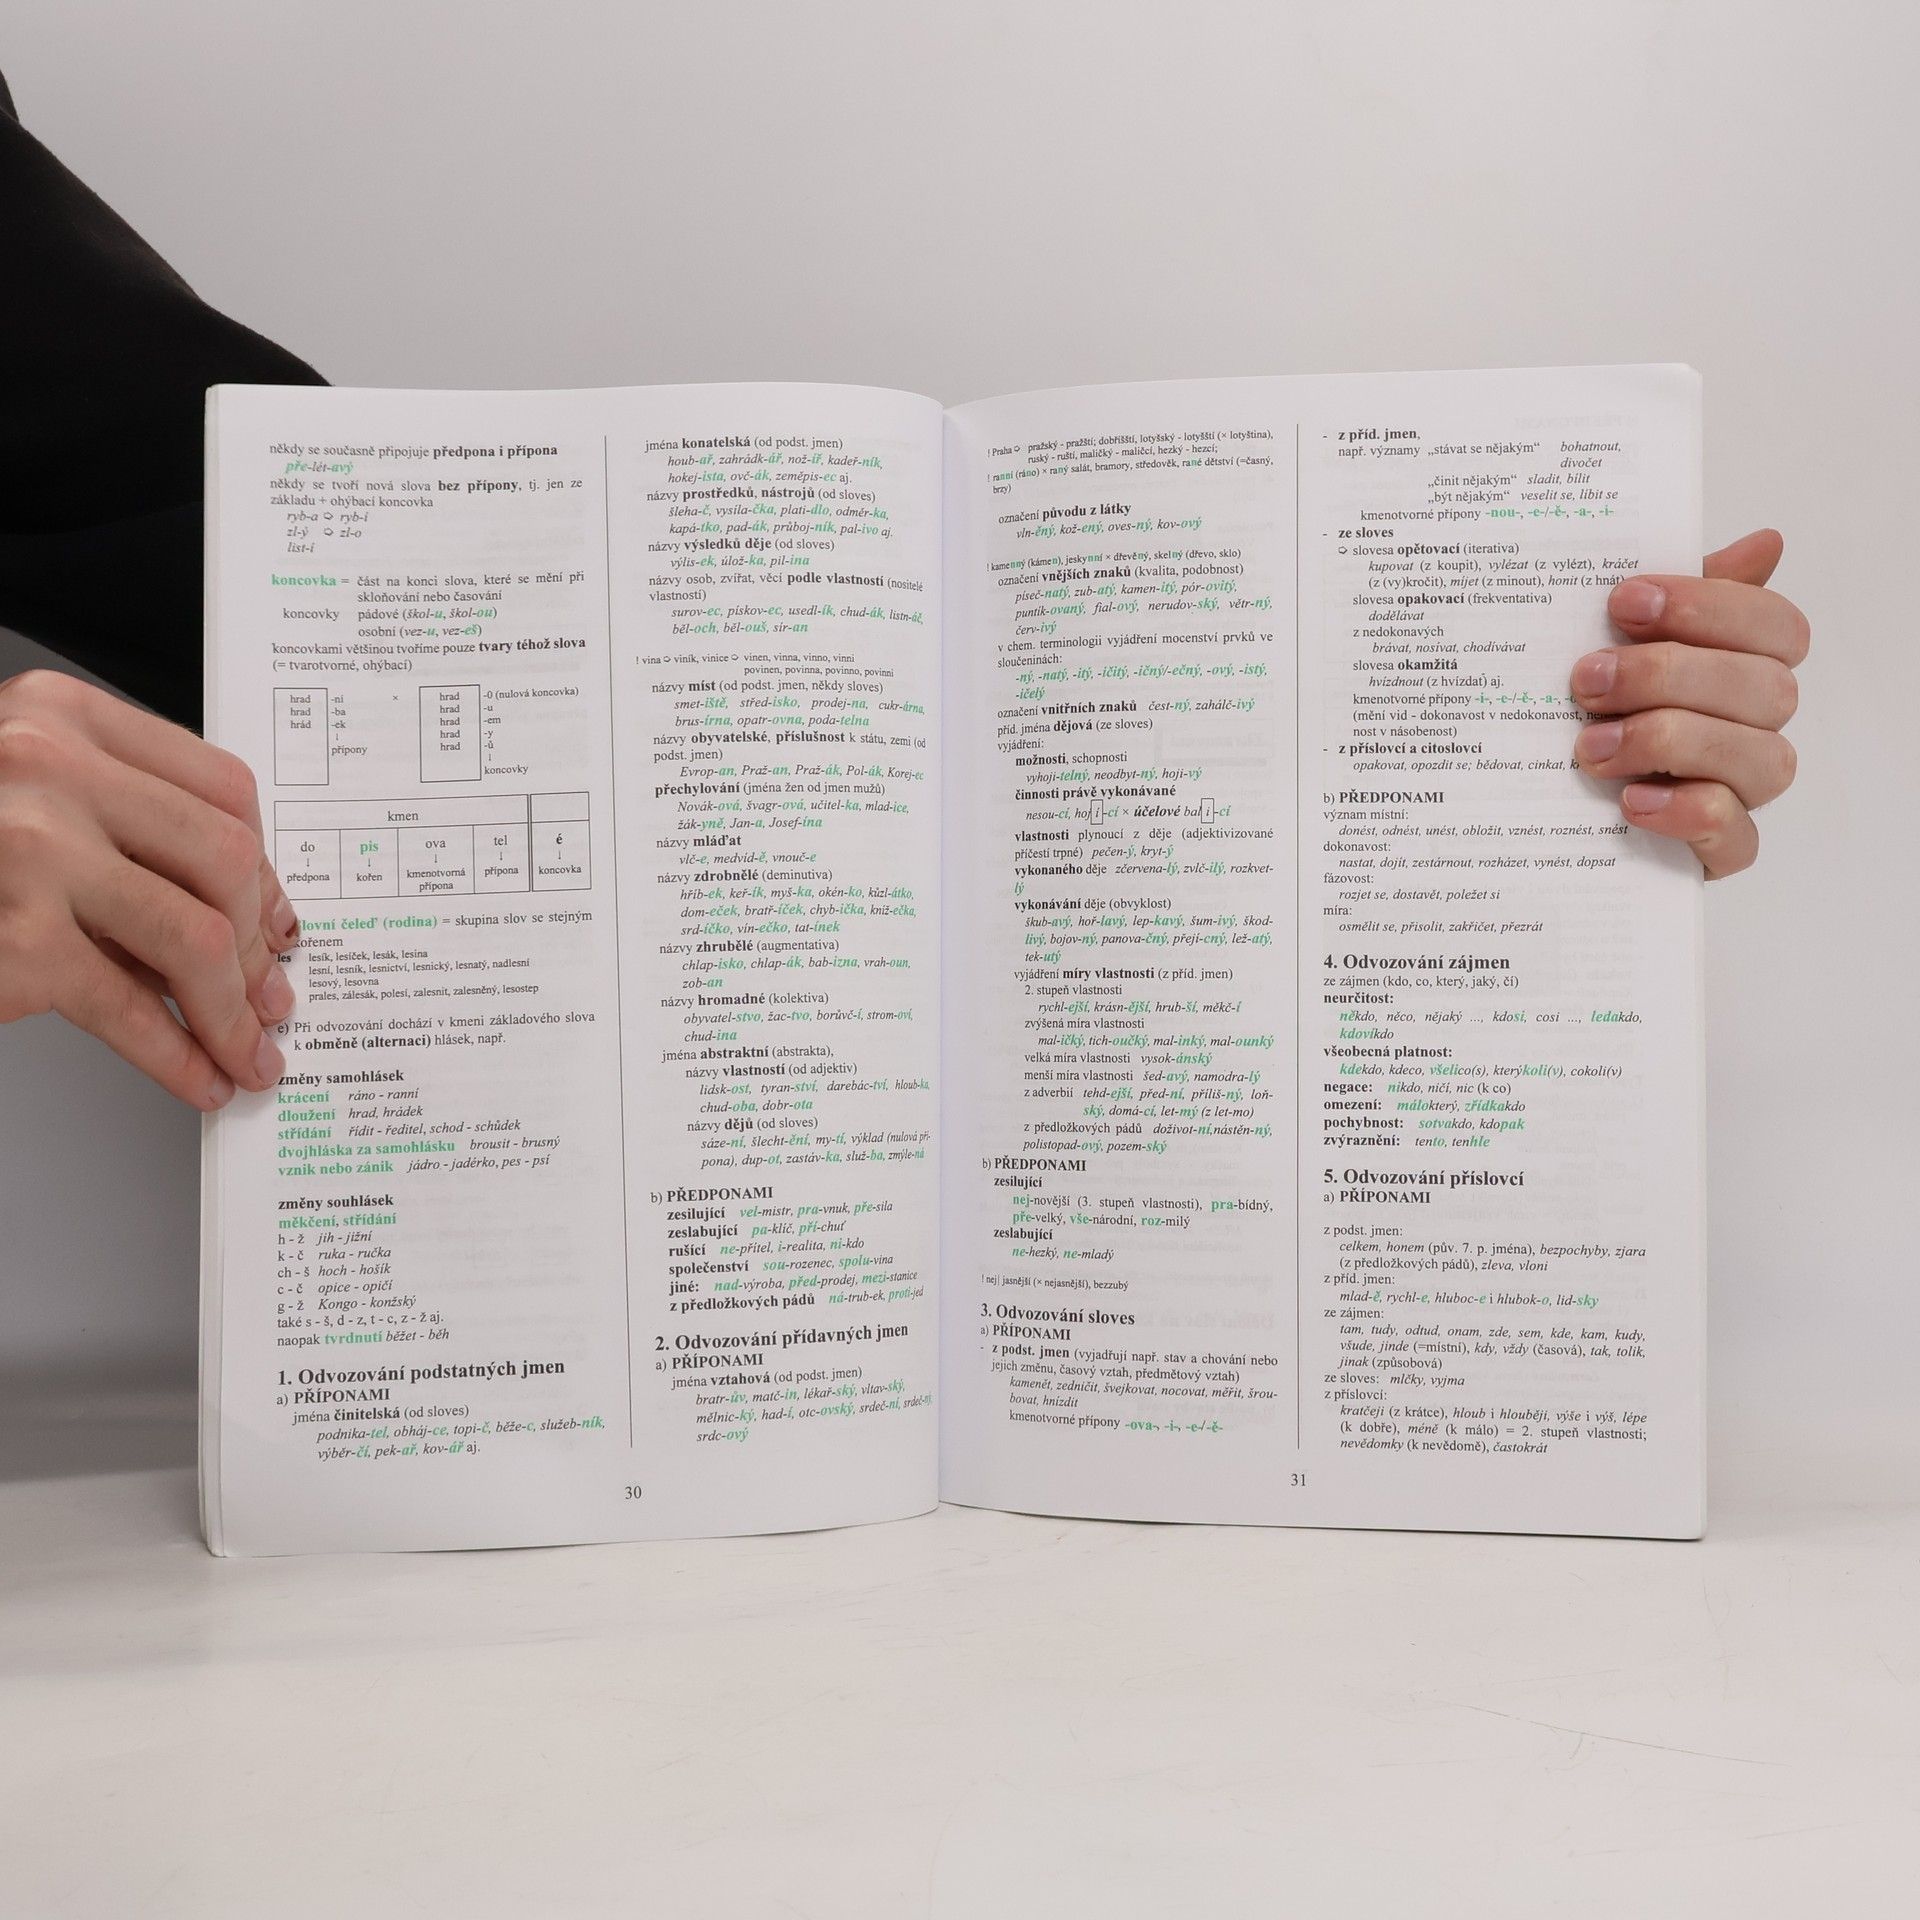 někdy se současně připojuje předpona i přípona
pře-lét-avý
někdy se tvoří nová slova bez přípony, tj. jen ze
základu + ohýbací koncovka
ryb-a ➪ ryb-í
zl-ý ➪ zl-o
list-í
koncovka = část na konci slova, které se mění při
skloňování nebo časování
koncovky pádové (škol-u, škol-ou)
osobní (vez-u, vez-eš)
koncovkami většinou tvoříme pouze tvary téhož slova
(= tvarotvorné, ohýbací)
hrad -ní × hrad -0 (nulová koncovka)
hrad -ba hrad -u
hrád -ek hrad -em
↓ hrad -y
přípony hrad -ů
↓
koncovky
kmen
do pis ova tel é
↓ ↓ ↓ ↓ ↓
předpona kořen kmenotvorná přípona koncovka
přípona
lovní čeleď (rodina) = skupina slov se stejným
kořenem
les lesík, lesíček, lesák, lesina
lesní, lesník, lesnictví, lesnický, lesnatý, nadlesní
lesový, lesovna
prales, zálesák, polesí, zalesnit, zalesněný, lesostep
e) Při odvozování dochází v kmeni základového slova
k obměně (alternaci) hlásek, např.
změny samohlásek
krácení ráno - ranní
dloužení hrad, hrádek
střídání řídit - ředitel, schod - schůdek
dvojhláska za samohlásku brousit - brusný
vznik nebo zánik jádro - jadérko, pes - psí
změny souhlásek
měkčení, střídání
h - ž jih - jižní
k - č ruka - ručka
ch - š hoch - hošík
c - č opice - opičí
g - ž Kongo - konžský
také s - š, d - z, t - c, z - ž aj.
naopak tvrdnutí běžet - běh
1. Odvozování podstatných jmen
a) PŘÍPONAMI
jména činitelská (od sloves)
podnika-tel, obháj-ce, topi-č, běže-c, služeb-ník,
výběr-čí, pek-ař, kov-ář aj.
jména konatelská (od podst. jmen)
houb-ař, zahrádk-ář, nož-íř, kadeř-ník,
hokej-ista, ovč-ák, zeměpis-ec aj.
názvy prostředků, nástrojů (od sloves)
šleha-č, vysíla-čka, plati-dlo, odměr-ka,
kapá-tko, pad-ák, průboj-ník, pal-ivo aj.
názvy výsledků děje (od sloves)
výlis-ek, úlož-ka, pil-ina
názvy osob, zvířat, věcí podle vlastností (nositelé
vlastností)
surov-ec, pískov-ec, usedl-ík, chud-ák, listn-áč,
běl-och, běl-ouš, sir-an
! vina ➪ viník, vinice ➪ vinen, vinna, vinno, vinni
povinen, povinna, povinno, povinni
názvy míst (od podst. jmen, někdy sloves)
smet-iště, střed-isko, prodej-na, cukr-árna,
brus-írna, opatr-ovna, poda-telna
názvy obyvatelské, příslušnost k státu, zemi (od
podst. jmen)
Evrop-an, Praž-an, Praž-ák, Pol-ák, Korej-ec
přechylování (jména žen od jmen mužů)
Novák-ová, švagr-ová, učitel-ka, mlad-ice,
žák-yně, Jan-a, Josef-ína
názvy mláďat
vlč-e, medvíd-ě, vnouč-e
názvy zdrobnělé (deminutiva)
hříb-ek, keř-ík, myš-ka, okén-ko, kůzl-átko,
dom-eček, bratř-íček, chyb-ička, kníž-ečka,
srd-íčko, vín-ečko, tat-ínek
názvy zhrubělé (augmentativa)
chlap-isko, chlap-ák, bab-izna, vrah-oun,
zob-an
názvy hromadné (kolektiva)
obyvatel-stvo, žac-tvo, borůvč-í, strom-oví,
chud-ina
jména abstraktní (abstrakta),
názvy vlastností (od adjektiv)
lidsk-ost, tyran-ství, darebác-tví, hloub-ka,
chud-oba, dobr-ota
názvy dějů (od sloves)
sáze-ní, šlecht-ění, my-tí, výklad (nulová pří-
pona), dup-ot, zastáv-ka, služ-ba, zmýle-ná
b) PŘEDPONAMI
zesilující vel-mistr, pra-vnuk, pře-síla
zeslabující pa-klíč, pří-chuť
rušící ne-přítel, i-realita, ni-kdo
společenství sou-rozenec, spolu-vina
jiné: nad-výroba, před-prodej, mezi-stanice
z předložkových pádů ná-trub-ek, proti-jed
2. Odvozování přídavných jmen
a) PŘÍPONAMI
jména vztahová (od podst. jmen)
bratr-ův, matč-in, lékař-ský, vltav-ský,
mělnic-ký, had-í, otc-ovský, srdeč-ní, srdeč-ný,
srdc-ový
30
! Praha ➪ pražský - pražští; dobříšští, lotyšský - lotyšští (× lotyština),
ruský - ruští, maličký - maličcí, hezký - hezcí;
! ranní (ráno) × raný salát, brambory, středověk, rané dětství (=časný,
brzy)
označení původu z látky
vln-ěný, kož-ený, oves-ný, kov-ový
! kamenný (kámen), jeskynní × dřevěný, skelný (dřevo, sklo)
označení vnějších znaků (kvalita, podobnost)
píseč-natý, zub-atý, kamen-itý, pór-ovitý,
puntík-ovaný, fial-ový, nerudov-ský, větr-ný,
červ-ivý
v chem. terminologii vyjádření mocenství prvků ve
sloučeninách:
-ný, -natý, -itý, -ičitý, -ičný/-ečný, -ový, -istý,
-ičelý
označení vnitřních znaků čest-ný, zahálč-ivý
příd. jména dějová (ze sloves)
vyjádření:
možnosti, schopnosti
vyhoji-telný, neodbyt-ný, hoji-vý
činnosti právě vykonávané
nesou-cí, hoj í -cí × účelové bal i -cí
vlastnosti plynoucí z děje (adjektivizované
příčestí trpné) pečen-ý, kryt-ý
vykonaného děje zčervena-lý, zvlč-ilý, rozkvet-
lý
vykonávání děje (obvyklost)
škub-avý, hoř-lavý, lep-kavý, šum-ivý, škod-
livý, bojov-ný, panova-čný, přejí-cný, lež-atý,
tek-utý
vyjádření míry vlastnosti (z příd. jmen)
2. stupeň vlastnosti
rychl-ejší, krásn-ější, hrub-ší, měkč-í
zvýšená míra vlastnosti
mal-ičký, tich-oučký, mal-inký, mal-ounký
velká míra vlastnosti vysok-ánský
menší míra vlastnosti šed-avý, namodra-lý
z adverbií tehd-ejší, před-ní, příliš-ný, loň-
ský, domá-cí, let-mý (z let-mo)
z předložkových pádů doživot-ní,nástěn-ný,
polistopad-ový, pozem-ský
b) PŘEDPONAMI
zesilující
nej-novější (3. stupeň vlastnosti), pra-bídný,
pře-velký, vše-národní, roz-milý
zeslabující
ne-hezký, ne-mladý
! nej| jasnější (× nejasnější), bezzubý
3. Odvozování sloves
a) PŘÍPONAMI
- z podst. jmen (vyjadřují např. stav a chování nebo
jejich změnu, časový vztah, předmětový vztah)
kamenět, zedničit, švejkovat, nocovat, měřit, šrou-
bovat, hnízdit
kmenotvorné přípony -ova-, -i-, -e-/-ě-
- z příd. jmen,
např. významy „stávat se nějakým“ bohatnout,
divočet
„činit nějakým“ sladit, bílit
„být nějakým“ veselit se, líbit se
kmenotvorné přípony -nou-, -e-/-ě-, -a-, -i-
- ze sloves
➪ slovesa opětovací (iterativa)
kupovat (z koupit), vylézat (z vylézt), kráčet
(z (vy)kročit), míjet (z minout), honit (z hnát)
slovesa opakovací (frekventativa)
dodělávat
z nedokonavých
brávat, nosívat, chodívávat
slovesa okamžitá
hvízdnout (z hvízdat) aj.
kmenotvorné přípony -i-, -e-/-ě-, -a-,
(mění vid - dokonavost v nedokonavost,
nost v násobenost)
- z příslovcí a citoslovcí
opakovat, opozdit se; bědovat, cinkat,
b) PŘEDPONAMI
význam místní:
donést, odnést, unést, obložit, vznést, roznést, snést
dokonavost:
nastat, dojít, zestárnout, rozházet, vynést, dopsat
fázovost:
rozjet se, dostavět, poležet si
míra:
osmělit se, přisolit, zakřičet, přezrát
4. Odvozování zájmen
ze zájmen (kdo, co, který, jaký, čí)
neurčitost:
někdo, něco, nějaký ..., kdosi, cosi ..., ledakdo,
kdovíkdo
všeobecná platnost:
kdekdo, kdeco, všelico(s), kterýkoli(v), cokoli(v)
negace: nikdo, ničí, nic (k co)
omezení: málokterý, zřídkakdo
pochybnost: sotvakdo, kdopak
zvýraznění: tento, tenhle
5. Odvozování příslovcí
a) PŘÍPONAMI
z podst. jmen:
celkem, honem (pův. 7. p. jména), bezpochyby, zjara
(z předložkových pádů), zleva, vloni
z příd. jmen:
mlad-ě, rychl-e, hluboc-e i hlubok-o, lid-sky
ze zájmen:
tam, tudy, odtud, onam, zde, sem, kde, kam, kudy,
všude, jinde (=místní), kdy, vždy (časová), tak, tolik,
jinak (způsobová)
ze sloves: mlčky, vyjma
z příslovcí:
kratčeji (z krátce), hloub i hlouběji, výše i výš, lépe
(k dobře), méně (k málo) = 2. stupeň vlastnosti;
nevědomky (k nevědomě), častokrát
31